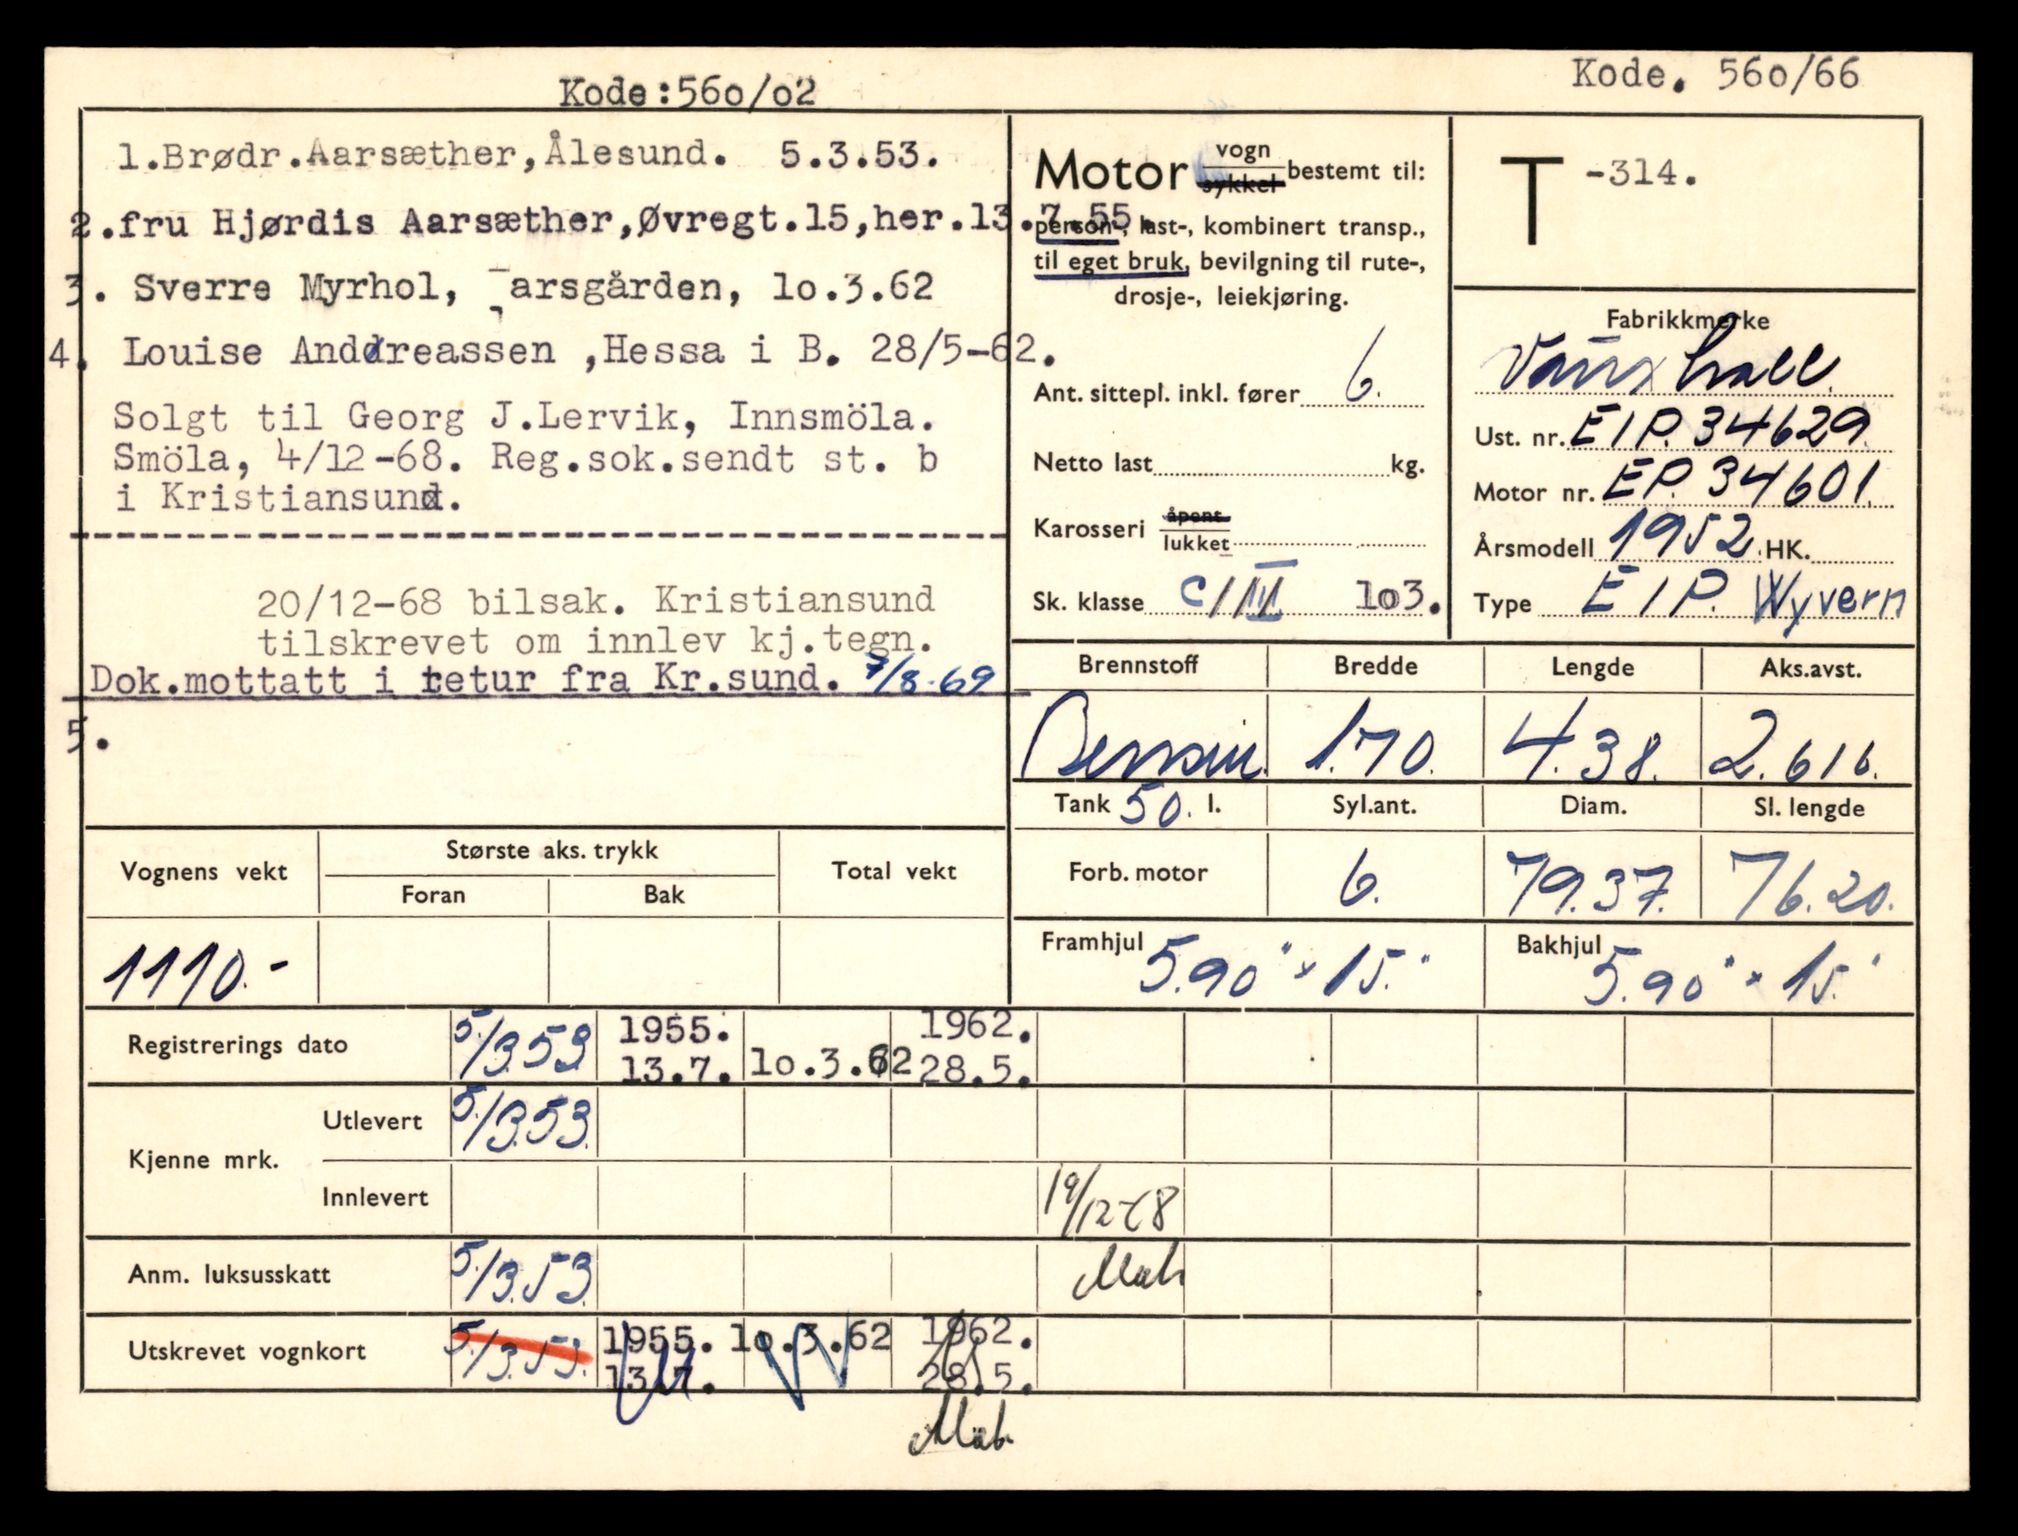 Kode:56o/o2
Kode. 56o/66
1.Brødr.Aarsæther,Ålesund. 5.3.53.
2.fru Hjørdis Aarsæther,Øvregt.15,her.13.7.55.
3. Sverre Myrhol, arsgården, lo.3.62
4. Louise Anddreassen ,Hessa i B. 28/5-62.
Solgt til Georg J.Lervik, Innsmöla.
Smöla, 4/12-68. Reg.sok.sendt st. b
i Kristiansund.
20/12-68 bilsak. Kristiansund
tilskrevet om innlev kj.tegn.
Dok.mottatt i retur fra Kr.sund. 7/8-69
5.
Motor vogn
sykkel bestemt til:
person-, last-, kombinert transp.,
til eget bruk, bevilgning til rute-,
drosje-, leiekjøring.
Ant. sittepl. inkl. fører 6.
Netto last kg.
Karosseri åpent
lukket
Sk. klasse C/III 1o3.
T -314.
Fabrikkmerke
Vauxhall.
Ust. nr. EIP. 34629.
Motor nr. EP. 34601.
Årsmodell 1952. HK.
Type EIP. Wyvern
Brennstoff Bredde Lengde Aks.avst.
Bensin. 1.70. 4.38. 2.616.
Tank 50. l. Syl.ant. Diam. Sl. lengde
Forb. motor 6. 79.37. 76.20.
Framhjul 5.90" x 15." Bakhjul 5.90" x 15."
Vognens vekt Største aks. trykk Total vekt
Foran Bak
1110.-
Registrerings dato 5./3.53 1955.
13.7. lo.3.62 1962.
28.5.
Kjenne mrk. Utlevert 5./3.53.
Innlevert 19/12-68
Anm. luksusskatt 5./3.53.
Utskrevet vognkort 5./3.53. 1955.
13.7. lo.3.62 1962.
28.5.